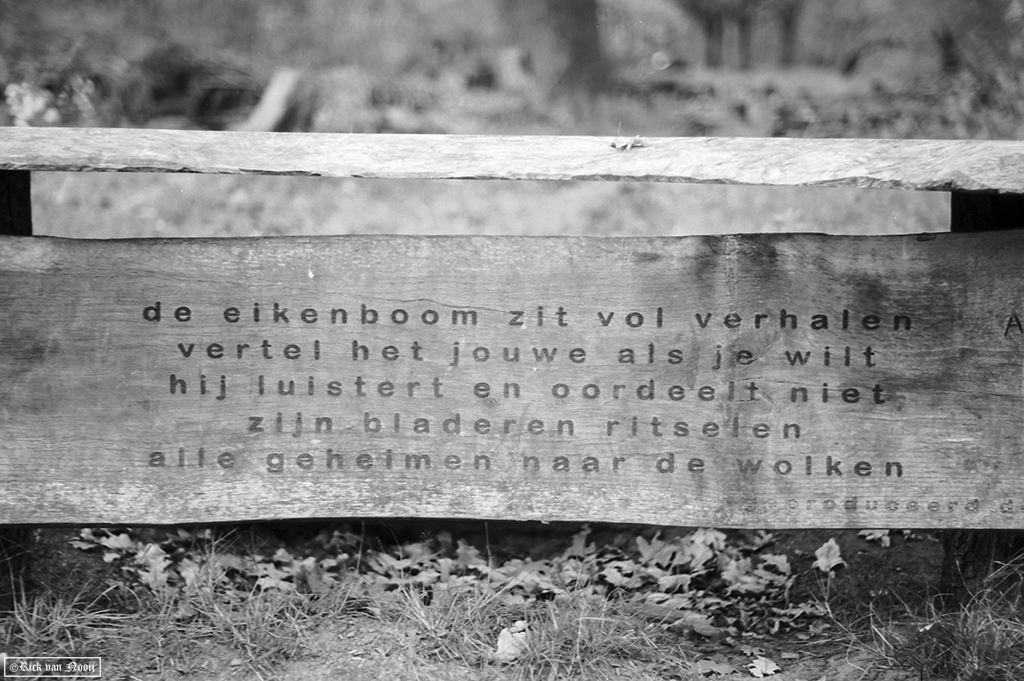 de eikenboom zit vol verhalen
vertel het jouwe als je wilt
hij luistert en oordeelt niet
zijn bladeren ritselen
alle geheimen naar de wolken
A
©Rick van Nooij